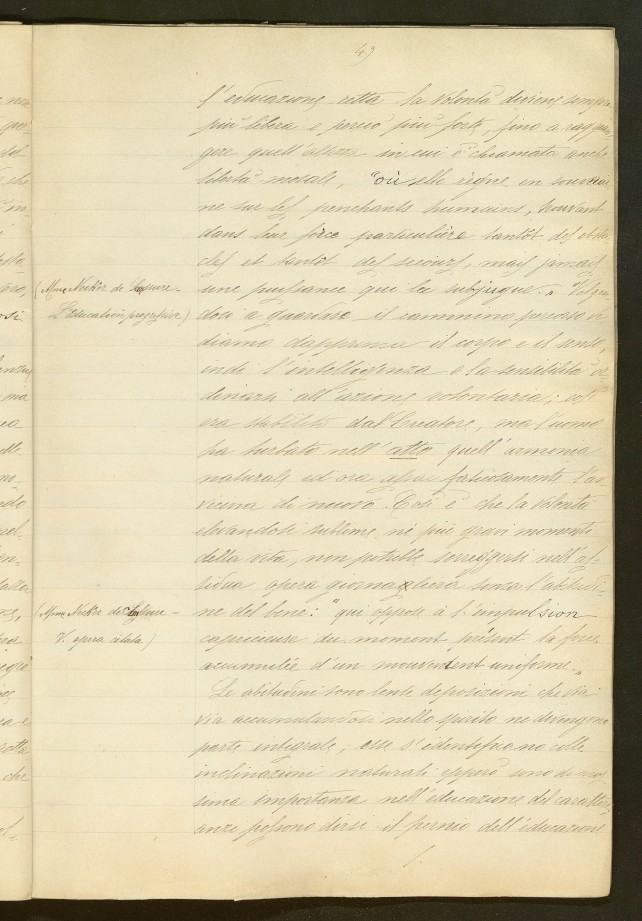 49
l'educazione retta la volontà diviene sempre
più libera e perciò più forte, fino a raggiun-
gere quell'altezza in cui è chiamata anche
libertà morale, "où elle règne en souverai-
ne sur les penchants humains, trouvant
dans leur force particulière tantôt des obsta-
cles et tantôt des secours, mais jamais
une puissance qui la subjugue."
(Mme Necker de Saussure -
L'education progressive)
dosi a guardare il cammino percorso ve-
diamo dapprima il corpo e il senso,
indi l'intelligenza e la sensibilità or-
dinarsi all'azione volontaria; così
era stabilito dal Creatore, ma l'uomo
ha turbato nell'atto quell'armonia
naturale ed ora assai faticosamente l'av-
vicina di nuovo. Così è che la volontà
elevandosi sublime, nei più gravi momenti
della vita, non potrebbe sorreggersi nell'as-
sidua opera giornaliera senza l'abitudi-
ne del bene: "qui oppose à l'impulsion
(Mme Necker de Saussure -
V. opera citata)
capricieuse du moment présent la force
accumulée d'un mouvement uniforme."
Le abitudini sono lente disposizioni che via
via accumulandosi nello spirito ne divengono
parte integrale, esse s'identificano colle
inclinazioni naturali epperò sono di mas-
sima importanza nell'educazione del carattere,
anzi possono dirsi il pernio dell'educazione